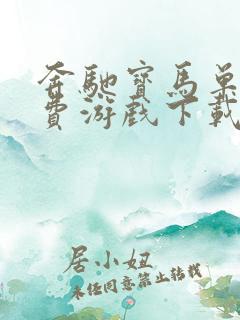 奔馳寶馬單
費游戲下載
居小妞
未经同意禁止转载